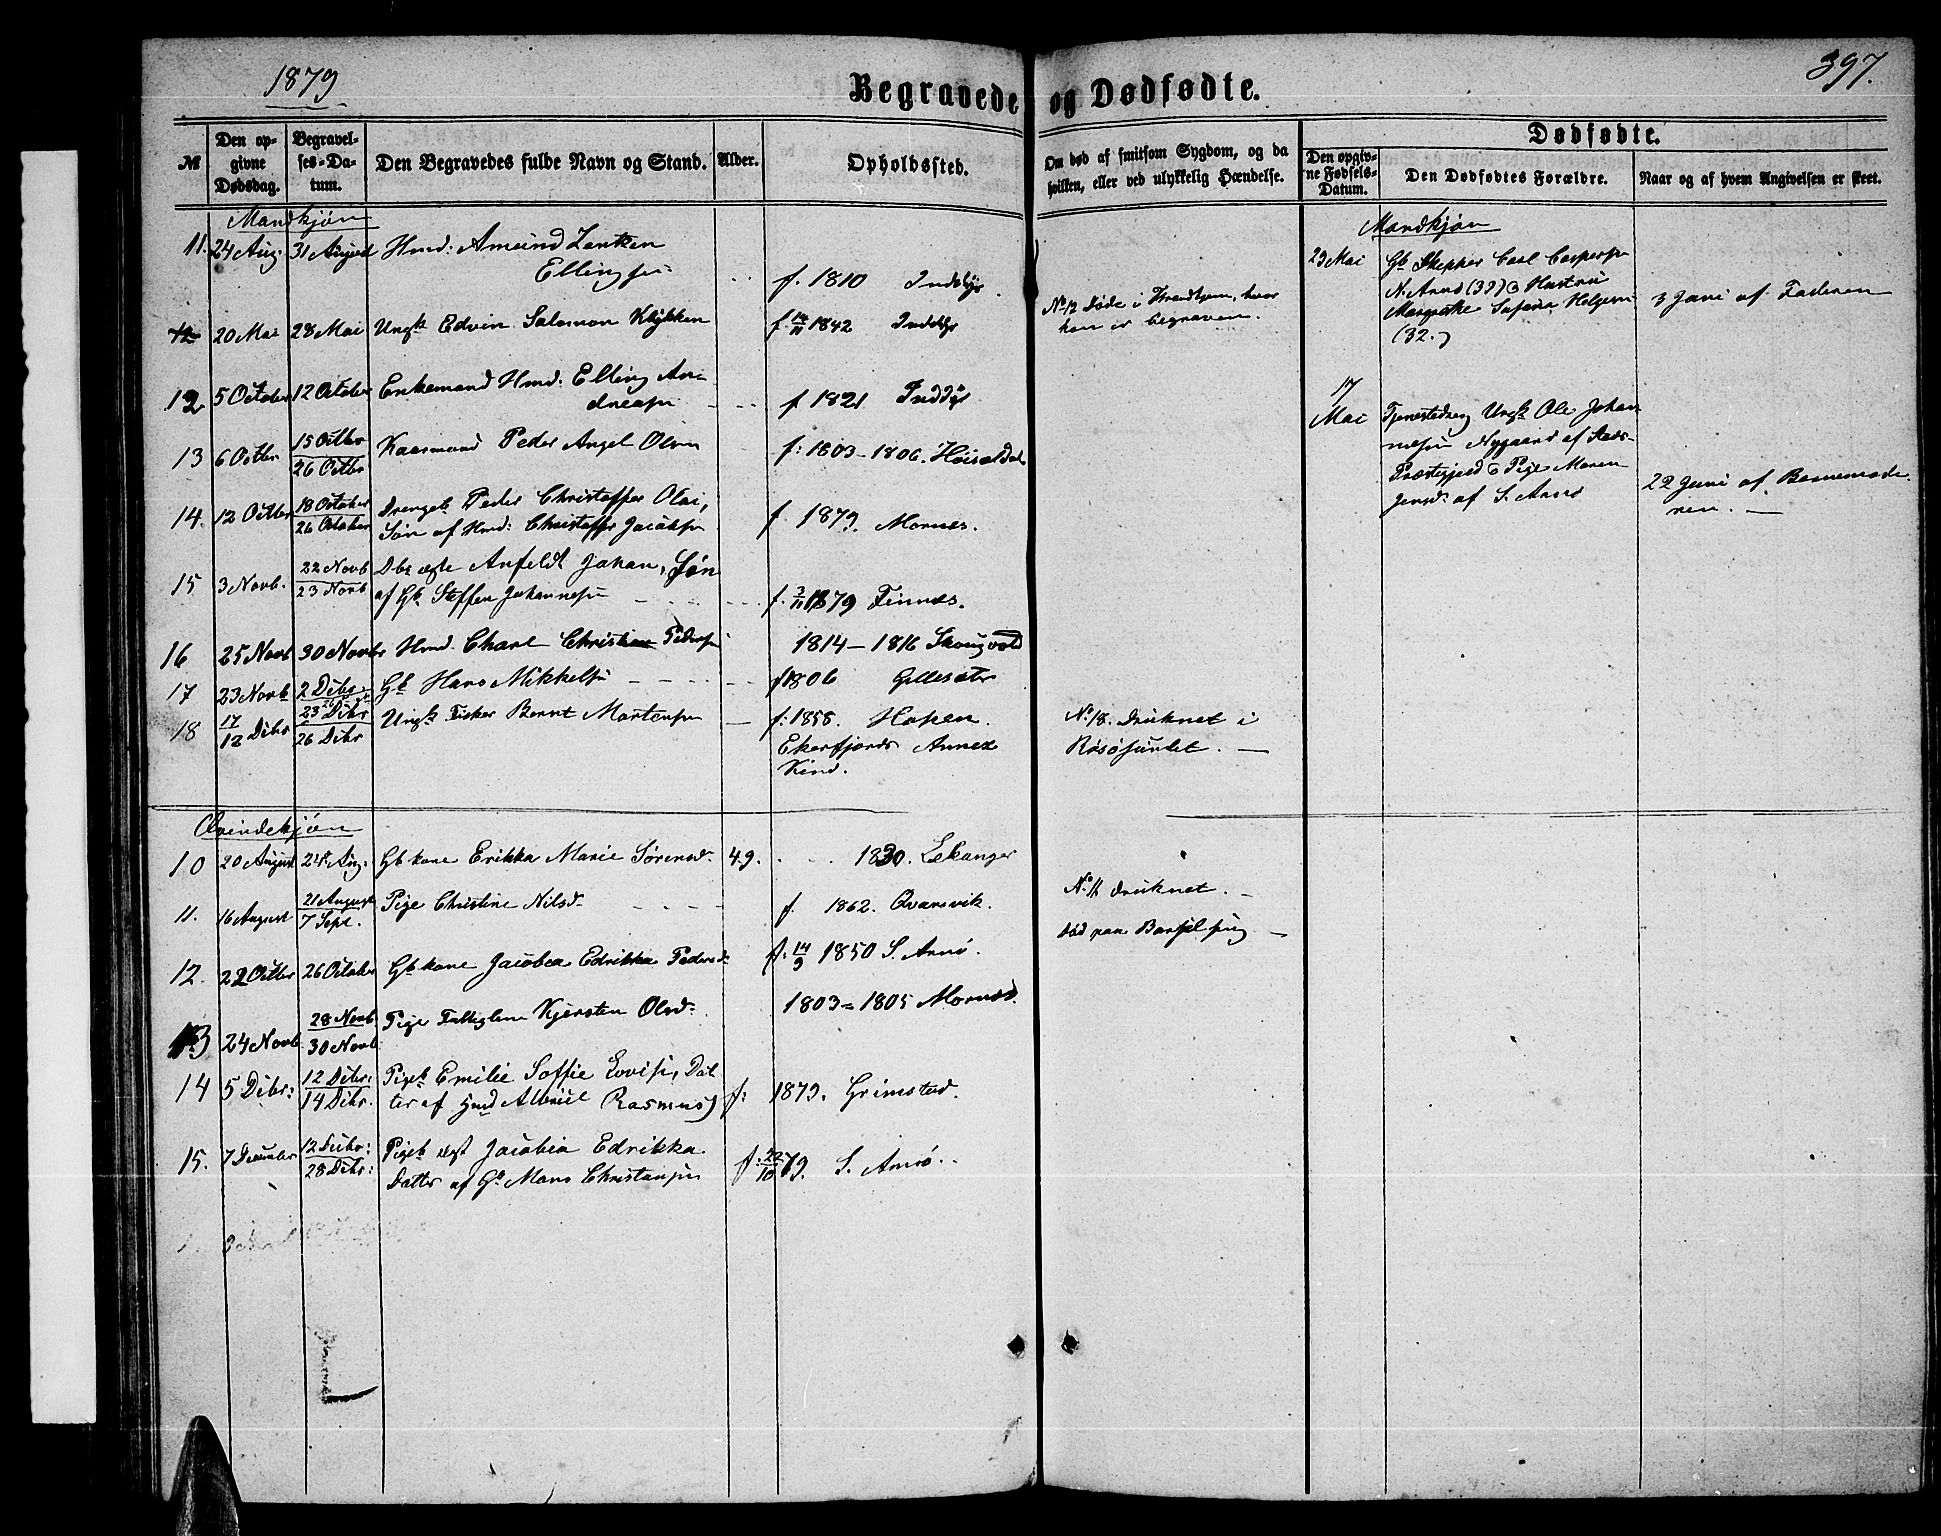 1879
397.
Begravede og Dødfødte.
№
Den opgivne Dødsdag.
Begravelses-Datum.
Den Begravedes fulde Navn og Stand.
Alder.
Opholdssted.
Om død af smitsom Sygdom, og da hvilken, eller ved ulykkelig Hændelse.
Dødfødte.
Den opgivne Fødsels-Datum.
Den Dødfødtes Forældre.
Naar og af hvem Angivelsen er skeet.
Mandkjøn
11. 24 Aug. 31 August Hmd: Amund Zentzen
Ellingsen
f. 1810 Inddyr
12 20 Mai 28 Mai Ungk Edvin Salomon Klykken f. 14/11 1842 Inddyr
No 12 Døde i Trondhjem, hvor
han er begraven.
12 5 October 12 October Enkemand Hmd: Elling An-
dreasen f 1821 Inddyr
13 6 Octbr 15 Octbr
26 Octbr
Kaarmand Peder Angel Olsen f: 1803-1806. Høiseldal
14. 12 Octbr 18 October
26 October
Drengeb Peder Christoffer Olai,
Søn af Hmd: Christoffer Jacobsen
f. 1879. Mornes.
15 3 Novb. 22 Novb
23 Novb
Dbn ægte Anfeldt Johan, Søn
af Gb Steffen Johannesen f. 3/11 1879 Finnes.
16 25 Novb 30 Novbr Hmd. Charl Christian Pedersen 1814-1816 Skougvold
17 23 Novb 2 Dcbr. Gb Hans Mikkelsen f 1806 Gillesæter
18 17/12 Dcbr 23 Dcbr
26 Dcbr
Ungk Fisker Bernt Mortensen f: 1858. Hopen
Annex
Kind.
No 18. Druknet i
Røsøsundet.
Qvindekjøn
10 20 August 24 Aug: Gb kone Erikka Marie Sørensd. 49. 1830. Lekanger
11. 16 August 21 August
7 Sept.
Pige Christine Nilsd. f. 1862. Qvarsvik.
No 11 druknet.
12. 22 Octbr 26 October Gb kone Jacobea Edrikka Pedersd f. 14/9 1850 S. Arnø.
død paa Barselseng
13 24 Novb 28 Novb
30 Novb
Pige Fattiglem Kjersten Olsd. 1803-1805 Mornes.
14 5 Dcbr: 12 Dcbr:
14 Dcbr.
Pigeb Emilie Soffie Lovise, Dat
ter af Hmd Albriel Rasmus) f: 1879. Grimstad.
15. 7 December 12 Decbr:
28 Dcbr:
Pigeb ægt Jacobia Edrikka
Datter af Gb Mons Christensen f. 22/10 79. S. Arnø.
Mandkjøn
23 Mai
Gb Skipper Carl Caspersen
N. Arnø (37) & Hustru
Margrethe Sofara Holgersen
(32.)
3 Juni af Faderen
17
Mai
Tjenestedreng Ungk Ole Johan
nesen Nygaard af Stads-
Præstegjeld & Pige Maren
Jensd. af S. Arnø
22 Juni af Barnemode-
ren.